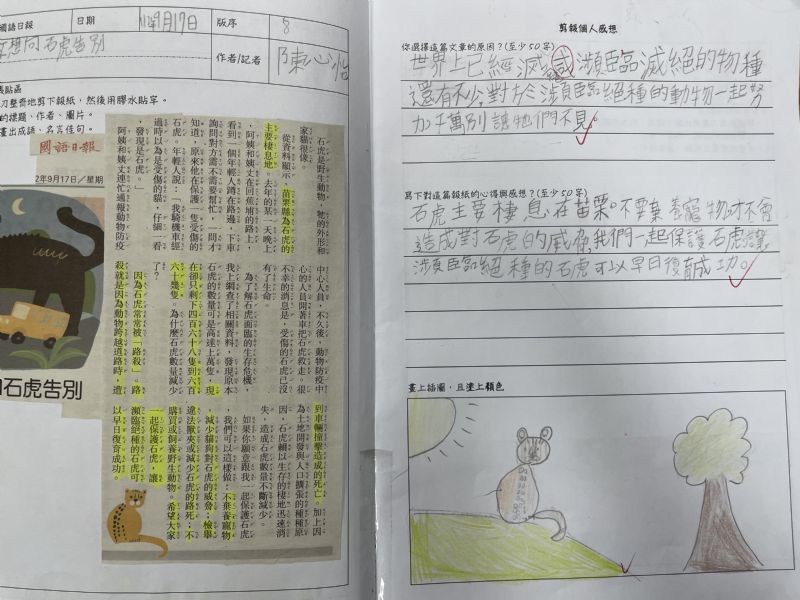 國語日報
日期
112年9月17日
版序
8
不想向石虎告別
作者/記者
陳心怡
黏貼區
刀整齊地剪下報紙,然後用膠水貼牢。
的標題、作者、圖片。
畫出成語、名言佳句。
國語日報
2年9月17日/星期
石虎告別
石虎是野生動物,牠的外形和
家貓很像。
從資料顯示,苗栗縣為石虎的
主要棲息地。去年的某一天晚上
,阿姨和姨丈在回蕉埔的路上,
看到一個年輕人蹲在路邊,下車
詢問對方需不需要幫忙,一問才
知道,原來他在保護一隻受傷的
石虎。年輕人說:「我騎機車經
過時以為是受傷的貓,仔細一看
,發現是石虎。」
阿姨和姨丈連忙通報動物防疫
中心人員,不久後,動物防疫中
心的人員開著車把石虎救走。很
不幸的消息是,受傷的石虎已沒
有了生命。
為了解石虎面臨的生存危機,
我上網查了相關資料,發現原本
石虎的數量可是高達上萬隻,現
在卻只剩下四百六十八隻到六百
六十幾隻。為什麼石虎數量減少
了?
因為石虎常常被「路殺」。路
殺就是因為動物跨越道路時,遭
到車輛撞擊造成的死亡。加上因
為土地開發與人口擴張的種種原
因,石虎賴以生存的棲地迅速消
失,造成石虎數量不斷減少。
如果你願意跟我一起保護石虎
,我們可以這樣做:不棄養寵物
,減少貓狗對石虎的威脅;檢舉
違法獸夾或減少石虎的路死;不
購買或飼養野生動物。希望大家
一起保護石虎,讓
瀕臨絕種的石虎可
以早日復育成功。
剪報個人感想
你選擇這篇文章的原因?(至少50字)
世界上已經滅或瀕臨滅絕的物種
還有不少,對於瀕臨絕種的動物一起努
力千萬別讓牠們不見。
寫下對這篇報紙的心得與感想?(至少50字)
石虎主要棲息在苗栗。不要棄養寵物才不會
造成對石虎的威脅,我們一起保護石虎讓
瀕臨絕種的石虎可以早日復育成功。
畫上插圖,且塗上顏色